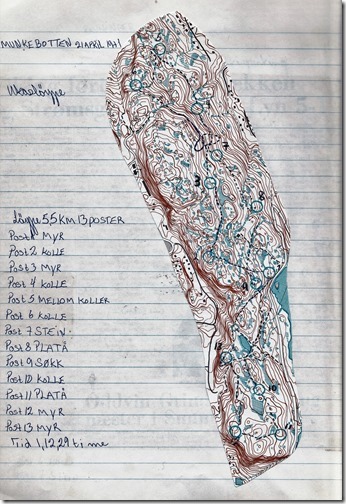 MUNKEBOTTEN 21 APRIL 1941
Løype 5.5 KM 13 POSTER
Post 1 MYR
Post 2 KOLLE
Post 3 MYR
Post 4 KOLLE
Post 5 MELLOM KOLLER
Post 6 KOLLE
Post 7 STEIN
Post 8 PLATÅ
Post 9 SØKK
Post 10 KOLLE
Post 11 PLATÅ
Post 12 MYR
Post 13 MYR
Tid 1,12,29 time